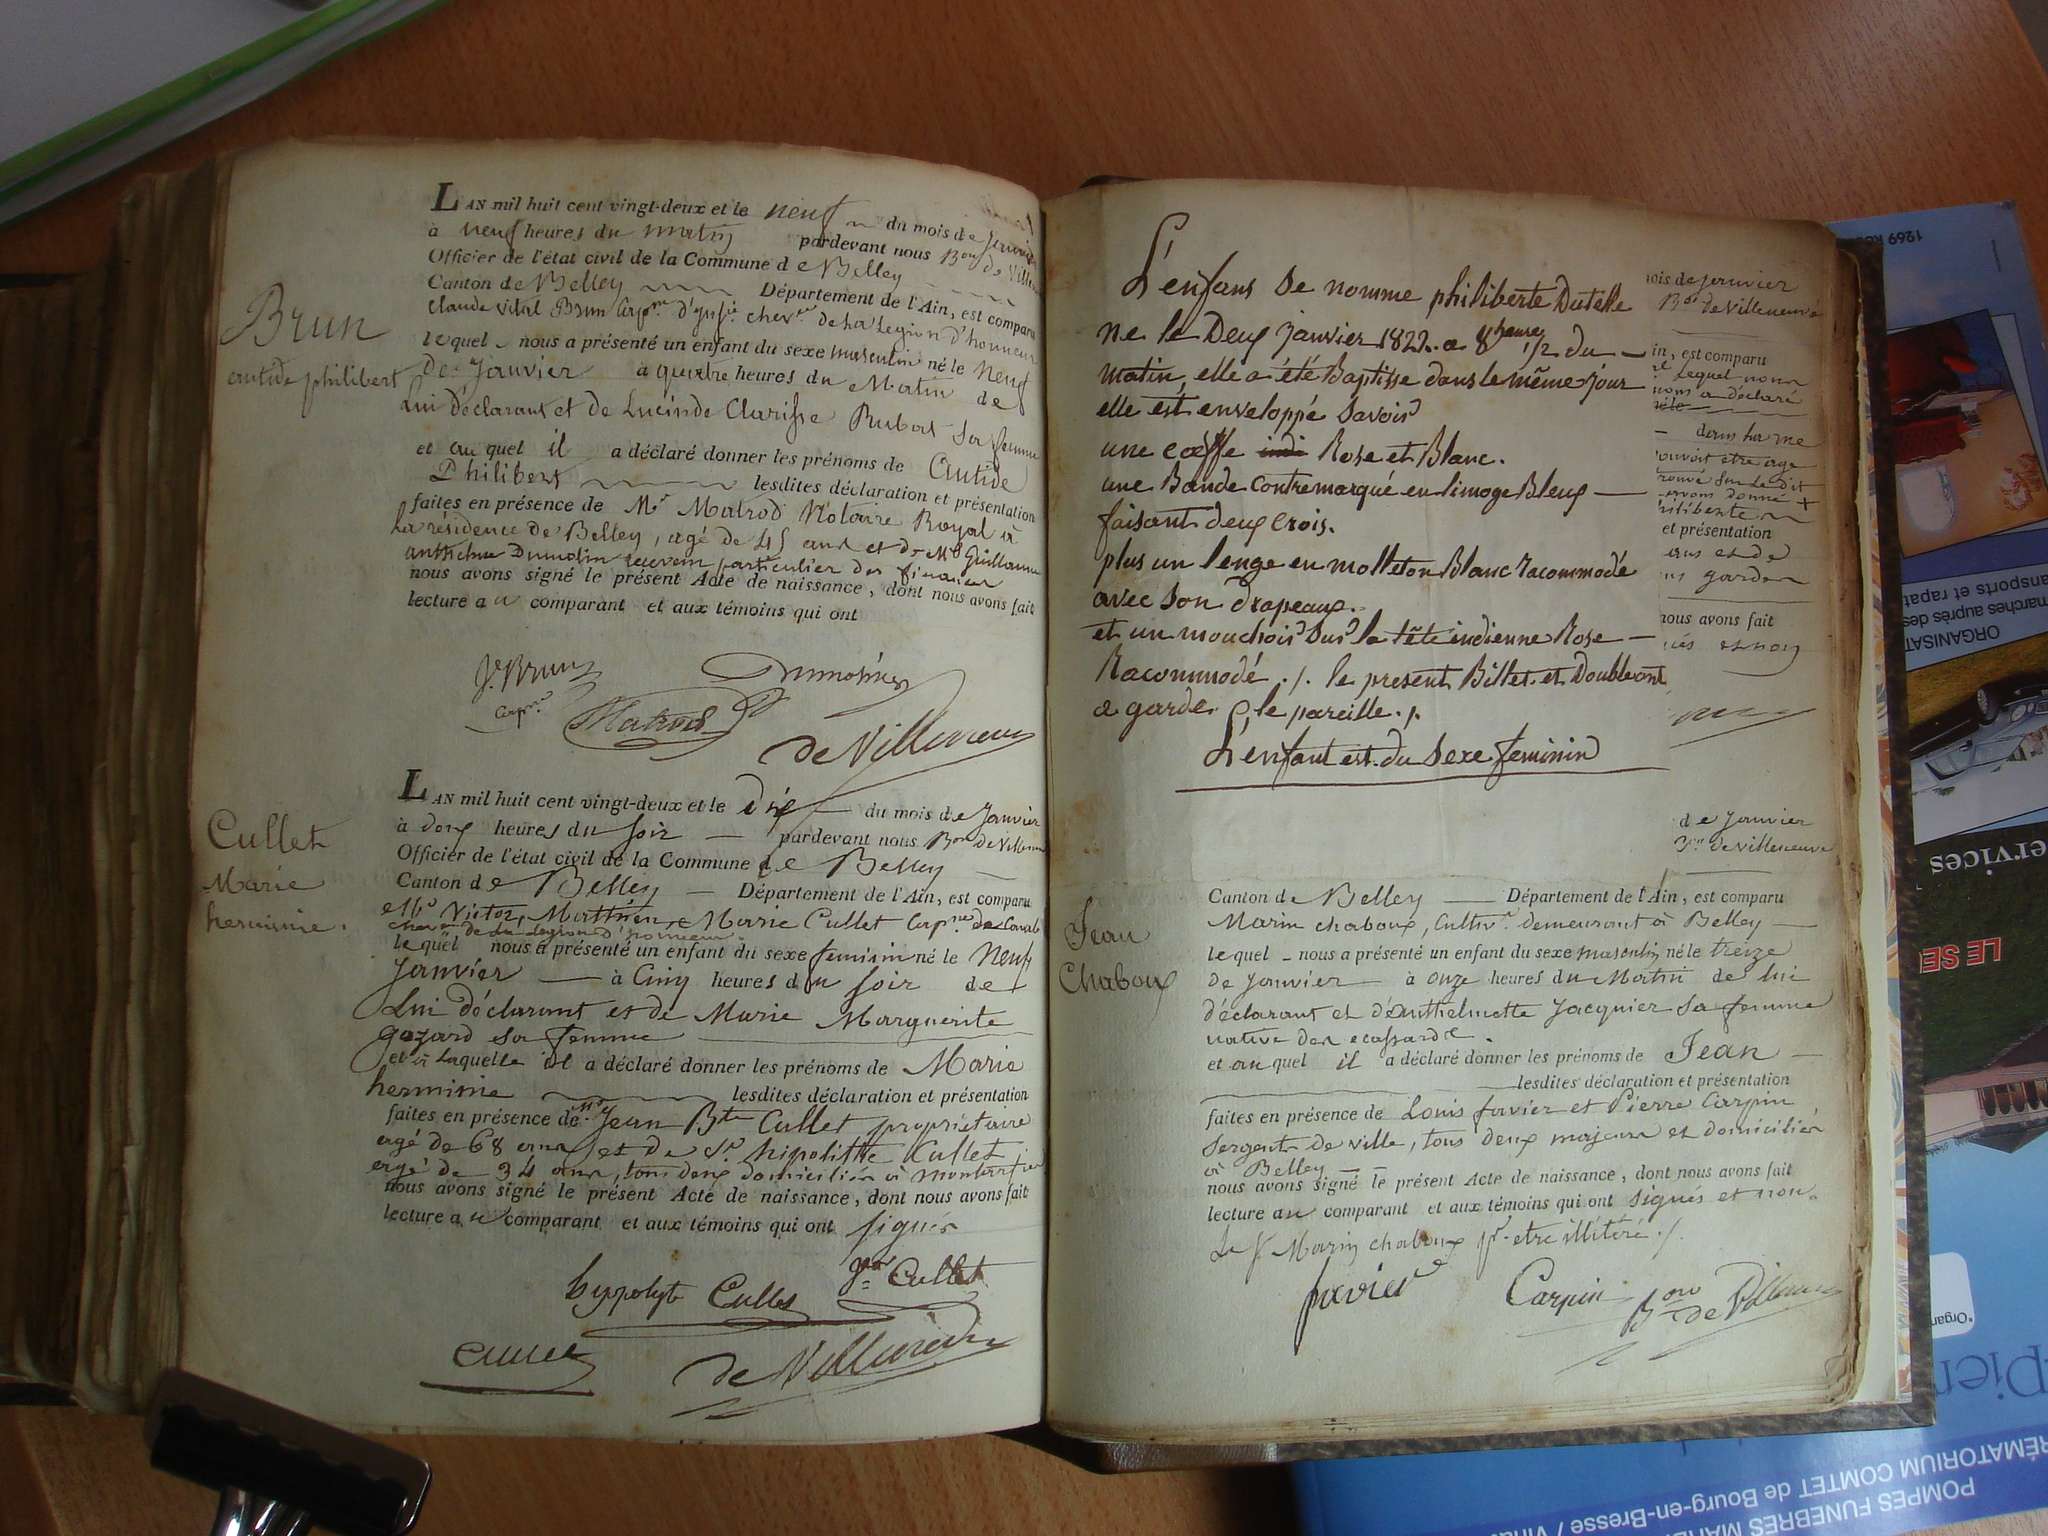 Brun
antide philibert
LAN mil huit cent vingt-deux et le neuf du mois de janvier
à neuf heures du matin pardevant nous Bon de Ville
Officier de l'état civil de la Commune de Belley
Canton de Belley Département de l'Ain, est comparu
Claude Vital Brun Capne d'Infie chevr de la Legion d'honneur
lequel nous a présenté un enfant du sexe masculin né le neuf
de Janvier à quatre heures du Matin de
Lui déclarant et de Lucinde Clarisse Rubat sa femme
et au quel il a déclaré donner les prénoms de Antide
Philibert lesdites déclaration et présentation
faites en présence de Mr Matrod Notaire Royal à
La résidence de Belley, agé de 45 ans et de Mr Guillaume
anthelme Dumolin receveur particulier des finances
nous avons signé le présent Acte de naissance, dont nous avons fait
lecture au comparant et aux témoins qui ont
Brun
capne
Dumolin
Matrod
de Villeneuve
Cullet
Marie
herminie.
LAN mil huit cent vingt-deux et le dix du mois de Janvier
à deux heures du soir pardevant nous Bon de Villeneuve
Officier de l'état civil de la Commune de Belley
Canton de Belley Département de l'Ain, est comparu
Mr Victor, Matthieu Marie Cullet Capne de
chevr de la Legion d'honneur.
lequel nous a présenté un enfant du sexe feminin né le Neuf
Janvier à Cinq heures du soir de
Lui déclarant et de Marie Marguerite
gozard sa femme
et à laquelle il a déclaré donner les prénoms de Marie
herminie lesdites déclaration et présentation
faites en présence de Mr Jean Bte Cullet propriétaire
agé de 68 ans et de Sr hipolithe Cullet
agé de 34 ans, tous deux domiciliés à
nous avons signé le présent Acte de naissance, dont nous avons fait
lecture au comparant et aux témoins qui ont signés
hyppolyte Cullet Cullet
Cullet
de Villeneuve
L'enfans se nomme philiberte Dutelle
ne le Deux janvier 1822. a 8 heures 1/2 du
matin, elle a été Baptisse dans le même jour
elle est enveloppé savoir
une coëffe indi Rose et Blanc.
une Bande contremarqué en limoge Bleux
faisant deux Crois.
plus un lenge en molleton Blanc racommodé
avec son drapeaux.
et un mouchoir sur la tête indienne Rose
Racommodé ./. le present Billet et Double ont
a garde le pareille ./.
L'enfant est du sexe feminin
mois de janvier
Bon de Villeneuve
in, est comparu
lequel nous
nous a déclaré
dans la
ouvoit etre age
trouvé sur le dit
avons donné +
philiberte
et présentation
ans et de
garden
nous avons fait
és et non
de Janvier
Bon de Villeneuve
Jean
Chaboux
Canton de Belley Département de l'Ain, est comparu
Marin chaboux, Cultivr demeurant à Belley
lequel nous a présenté un enfant du sexe masculin né le treize
de Janvier à onze heures du Matin de lui
déclarant et d'anthelmette Jacquier sa femme
native des ecassards.
et au quel il a déclaré donner les prénoms de Jean
lesdites déclaration et présentation
faites en présence de Louis favier et Pierre Carpin
sergents de ville, tous deux majeurs et domiciliés
à Belley
nous avons signé le présent Acte de naissance, dont nous avons fait
lecture au comparant et aux témoins qui ont signés et non
Le Sr Marin chaboux pr etre illitéré ./.
favier
Carpin
Bon de Villeneuve
ORGANISAT
marches auprès des
ansports et rapat
ervices
LE SE
*Organ
REMATORIUM COMTET de Bourg-en-Bresse
POMPES FUNEBRES